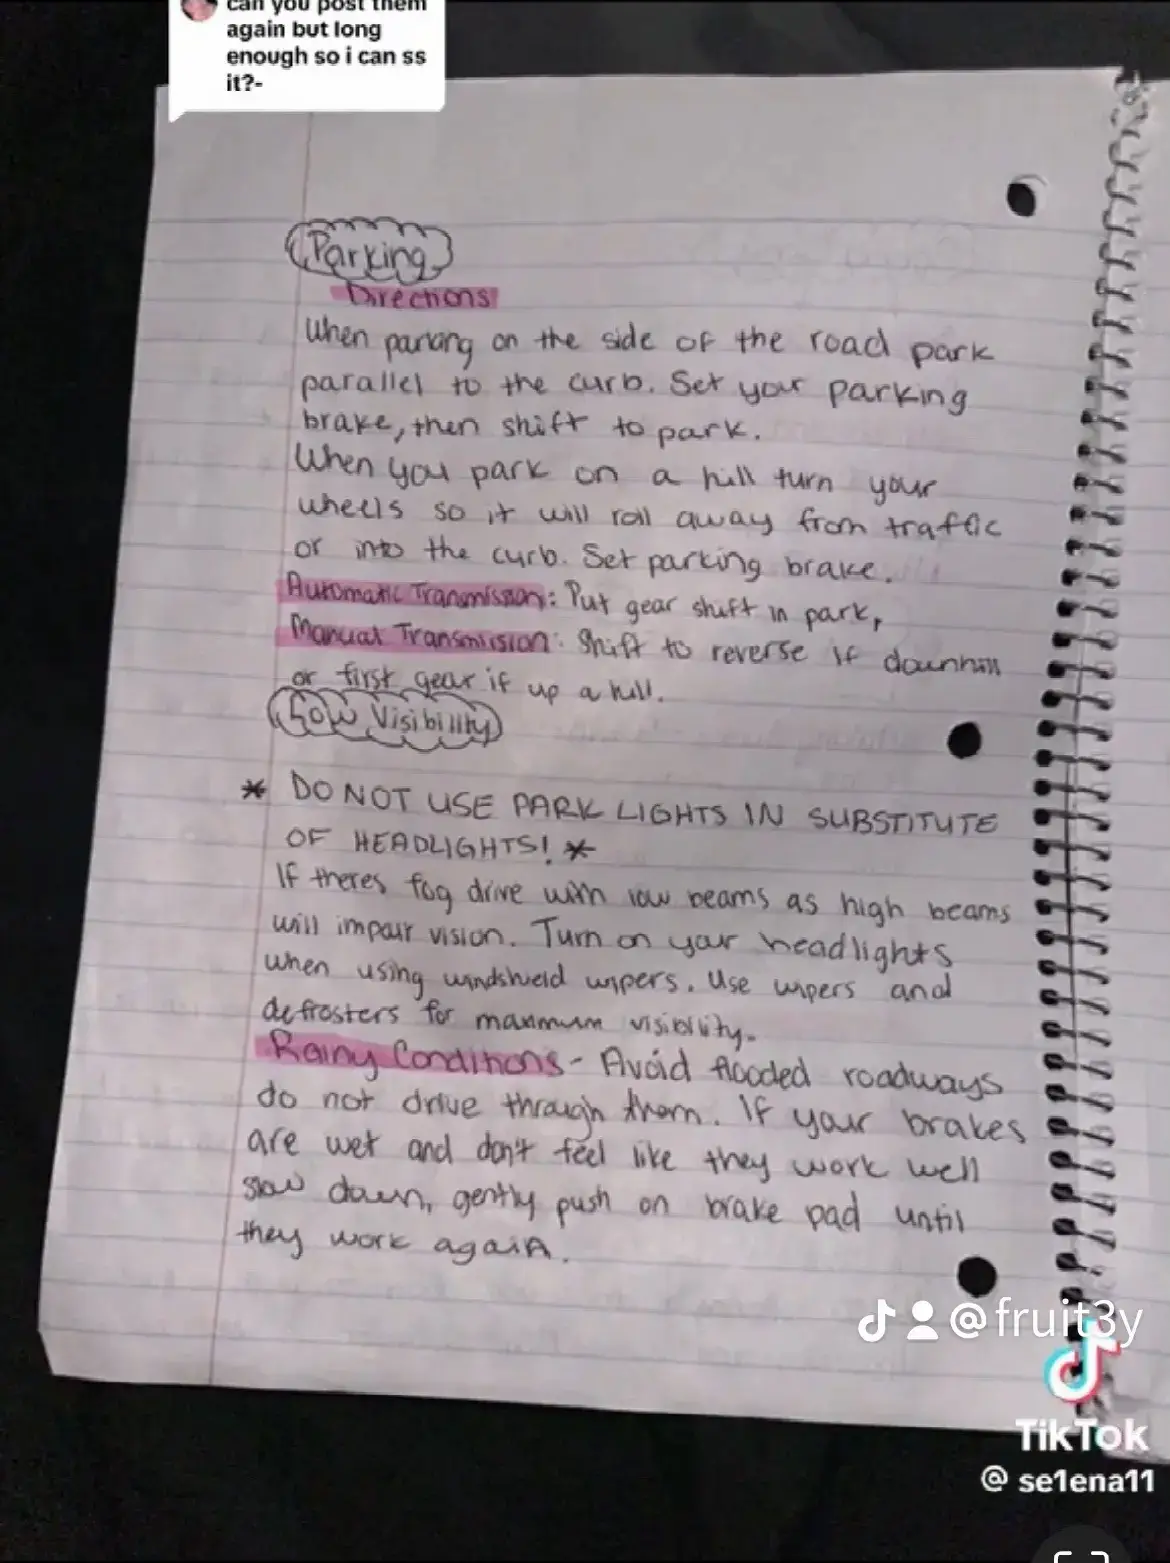 can you post them
again but long
enough so i can ss
it?-
Parking
Directions
When parking on the side of the road park
parallel to the curb. Set your parking
brake, then shift to park.
When you park on a hill turn your
wheels so it will roll away from traffic
or into the curb. Set parking brake.
Automatic Transmission: Put gear shift in park,
Manual Transmission: Shift to reverse if downhill
or first gear if up a hill.
Low Visibility
* DO NOT USE PARK LIGHTS IN SUBSTITUTE
OF HEADLIGHTS! *
If theres fog drive with low beams as high beams
will impair vision. Turn on your headlights
when using windshield wipers. Use wipers and
defrosters for maximum visibility.
Rainy Conditions - Avoid flooded roadways
do not drive through them. If your brakes
are wet and don't feel like they work well
slow down, gently push on brake pad until
they work again.
@fruit3y
TikTok
@ se1ena11